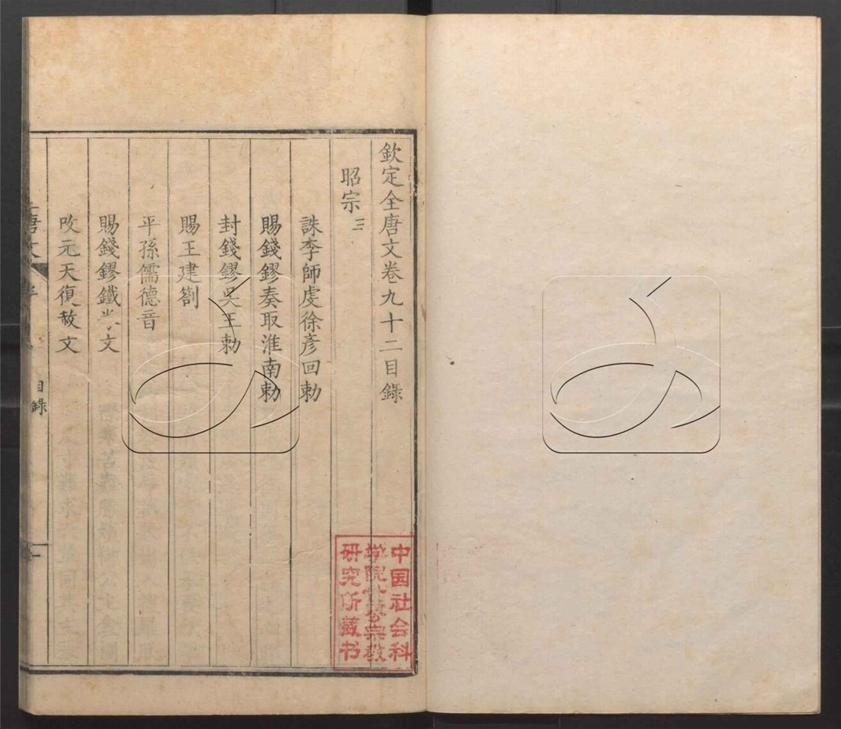 欽定全唐文卷九十二目錄
昭宗三
誅李師虔徐彥回勅
賜錢鏐奏取淮南勅
封錢鏐吳王勅
賜王建劄
平孫儒德音
賜錢鏐鐵券文
改元天復赦文
唐文
目錄
中国社会科
学院世界宗教
研究所藏书